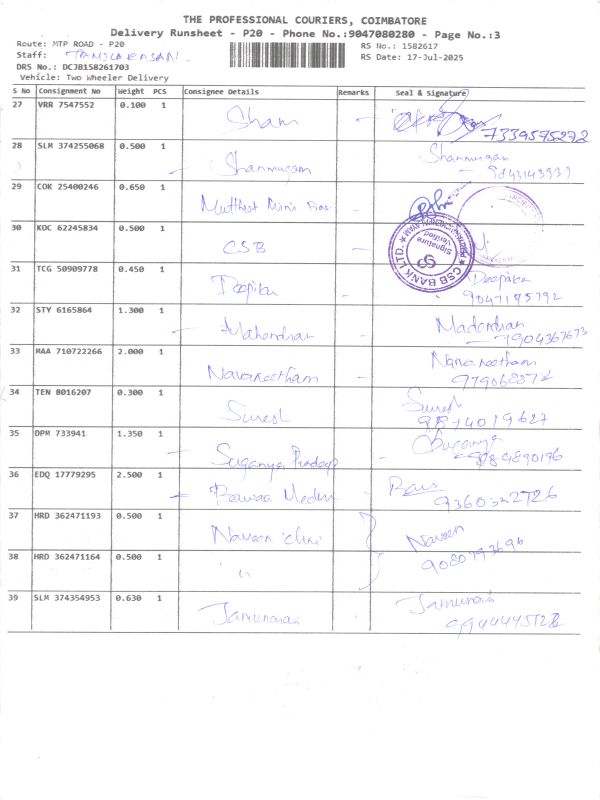 THE PROFESSIONAL COURIERS, COIMBATORE
Delivery Runsheet - P20 - Phone No.:9047080280 - Page No.:3
Route: MTP ROAD - P20
RS No.: 1582617
Staff: TAMILARASAN
RS Date: 17-Jul-2025
DRS No.: DCJB158261703
Vehicle: Two Wheeler Delivery
S No Consignment No Weight PCS Consignee Details Remarks Seal & Signature
27 VRR 7547552 0.100 1 Sham 7339575272
28 SLM 374255068 0.500 1 Shanmugam Shanmugam
29 COK 25400246 0.650 1
30 KOC 62245834 0.500 1 CSB
CSB BANK LTD.
Signature Verified
31 TCG 50909778 0.450 1 Deepika Deepika
9047195792
32 STY 6165864 1.300 1 Mahendran
7904367673
33 MAA 710722266 2.000 1 Navaneetham Navaneetham
34 TEN 8016207 0.300 1 Suresh Suresh
9814019627
35 DPM 733941 1.350 1 Suganya Pradeep Suganya
9884890196
36 EDQ 17779295 2.500 1
9360322726
37 HRD 362471193 0.500 1 Naveen clinic Naveen
9080793696
38 HRD 362471164 0.500 1 "
39 SLM 374354953 0.630 1 Jamunarani